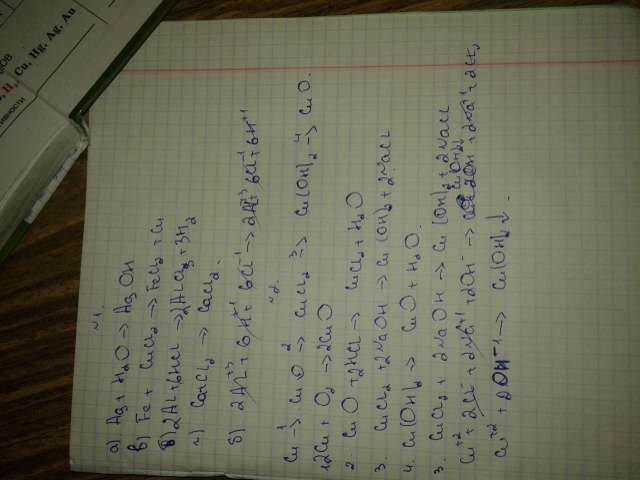 ОВ
H₂, Cu, Hg, Ag, Au
ивности
~1.
а) Ag + H₂O → AgOH
в) Fe + CuCl₂ → FeCl₂ + Cu
б) 2Al + 6HCl → 2AlCl₃ + 3H₂
г) CaCl₂ → CaCl₂.
б) 2Al⁺³ + 6H⁺¹ + 6Cl⁻¹ → 2Al⁺³ + 6Cl⁻¹ + 6H⁺¹
~2.
Cu →¹ CuO →² CuCl₂ →³ Cu(OH)₂ →⁴ CuO.
1. 2Cu + O₂ → 2CuO
2. CuO + 2HCl → CuCl₂ + H₂O
3. CuCl₂ + 2NaOH → Cu(OH)₂ + 2NaCl
4. Cu(OH)₂ → CuO + H₂O.
3. CuCl₂ + 2NaOH → Cu(OH)₂ + 2NaCl
Cu⁺² + 2Cl⁻ + 2Na⁺¹ + 2OH⁻ → Cu(OH)₂ + 2Na⁺¹ + 2Cl,
Cu⁺² + 2OH⁻¹ → Cu(OH)₂↓.